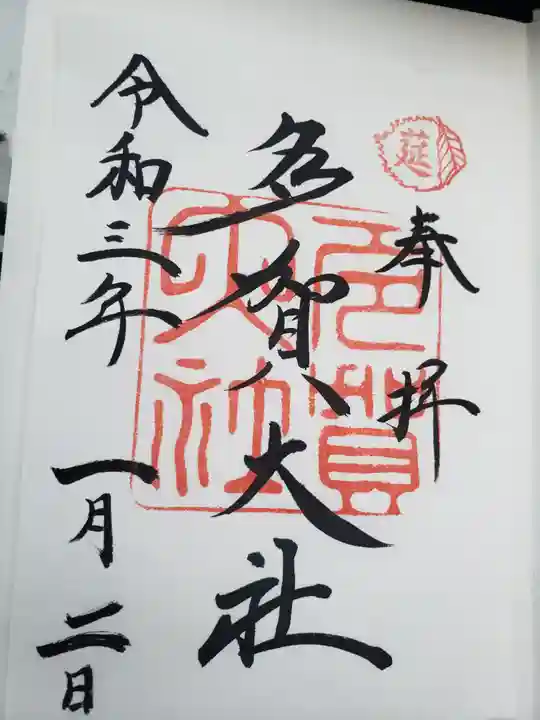 莚
奉拝
多賀大社
多賀大社
令和三年一月二日